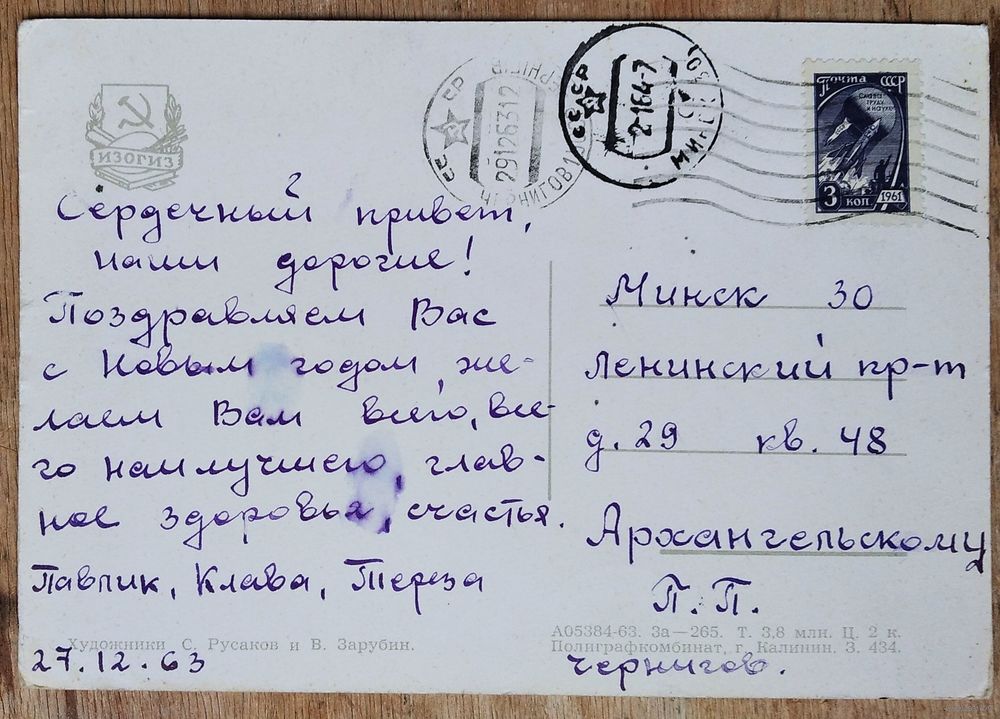 ИЗОГИЗ
СССР
29126312
ЧЕРНИГОВ 1
СССР
2-164-7
МИНСК
Почта СССР
СЛАВА
ТРУДУ
И НАУКЕ
3 КОП. 1961
Сердечный привет,
наши дорогие!
Поздравляем Вас
с Новым годом, же-
лаем Вам всего, все-
го наилучшего, глав-
ное здоровья, счастья.
Павлик, Клава, Тереза
27.12.63
Художники С. Русаков и В. Зарубин.
Минск 30
Ленинский пр-т
д. 29 кв. 48
Архангельскому
П. П.
А05384-63. За—265. Т. 3,8 млн. Ц. 2 к.
Полиграфкомбинат, г. Калинин. З. 434.
Чернигов.